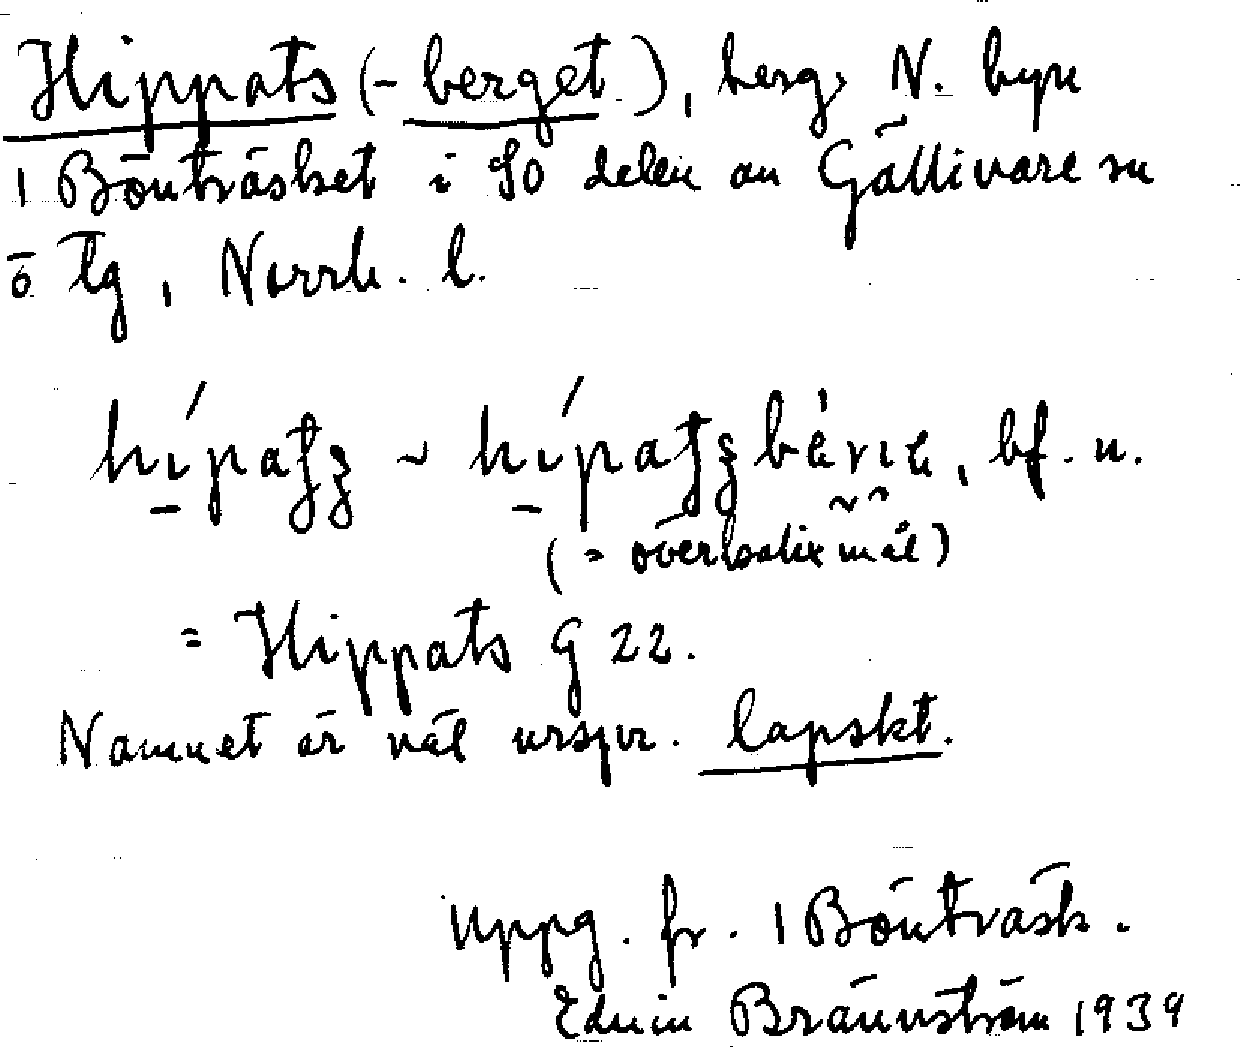 Hippats (-berget), berg, N. byn
1 Bönträsket i SO delen av Gällivare sn
o tg, Norrb. l.
hípatʂ ~ hípatʂbärjɛ, bf. n.
(= överkalixmål)
= Hippats G 22.
Namnet är väl urspr. lapskt.
Uppg. fr. 1 Bönträsk.
Edvin Brännström 1939